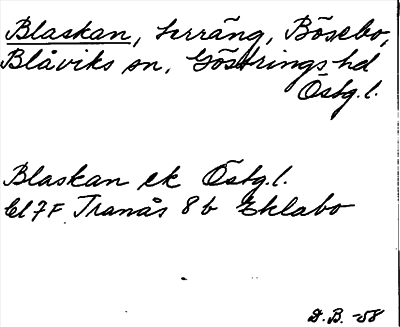 Blaskan, terräng, Bösebo,
Blåviks sn, Göstrings hd
Östg.l.
Blaskan ek Östg.l.
7F Tranås 8b Eklabo
D.B. -58